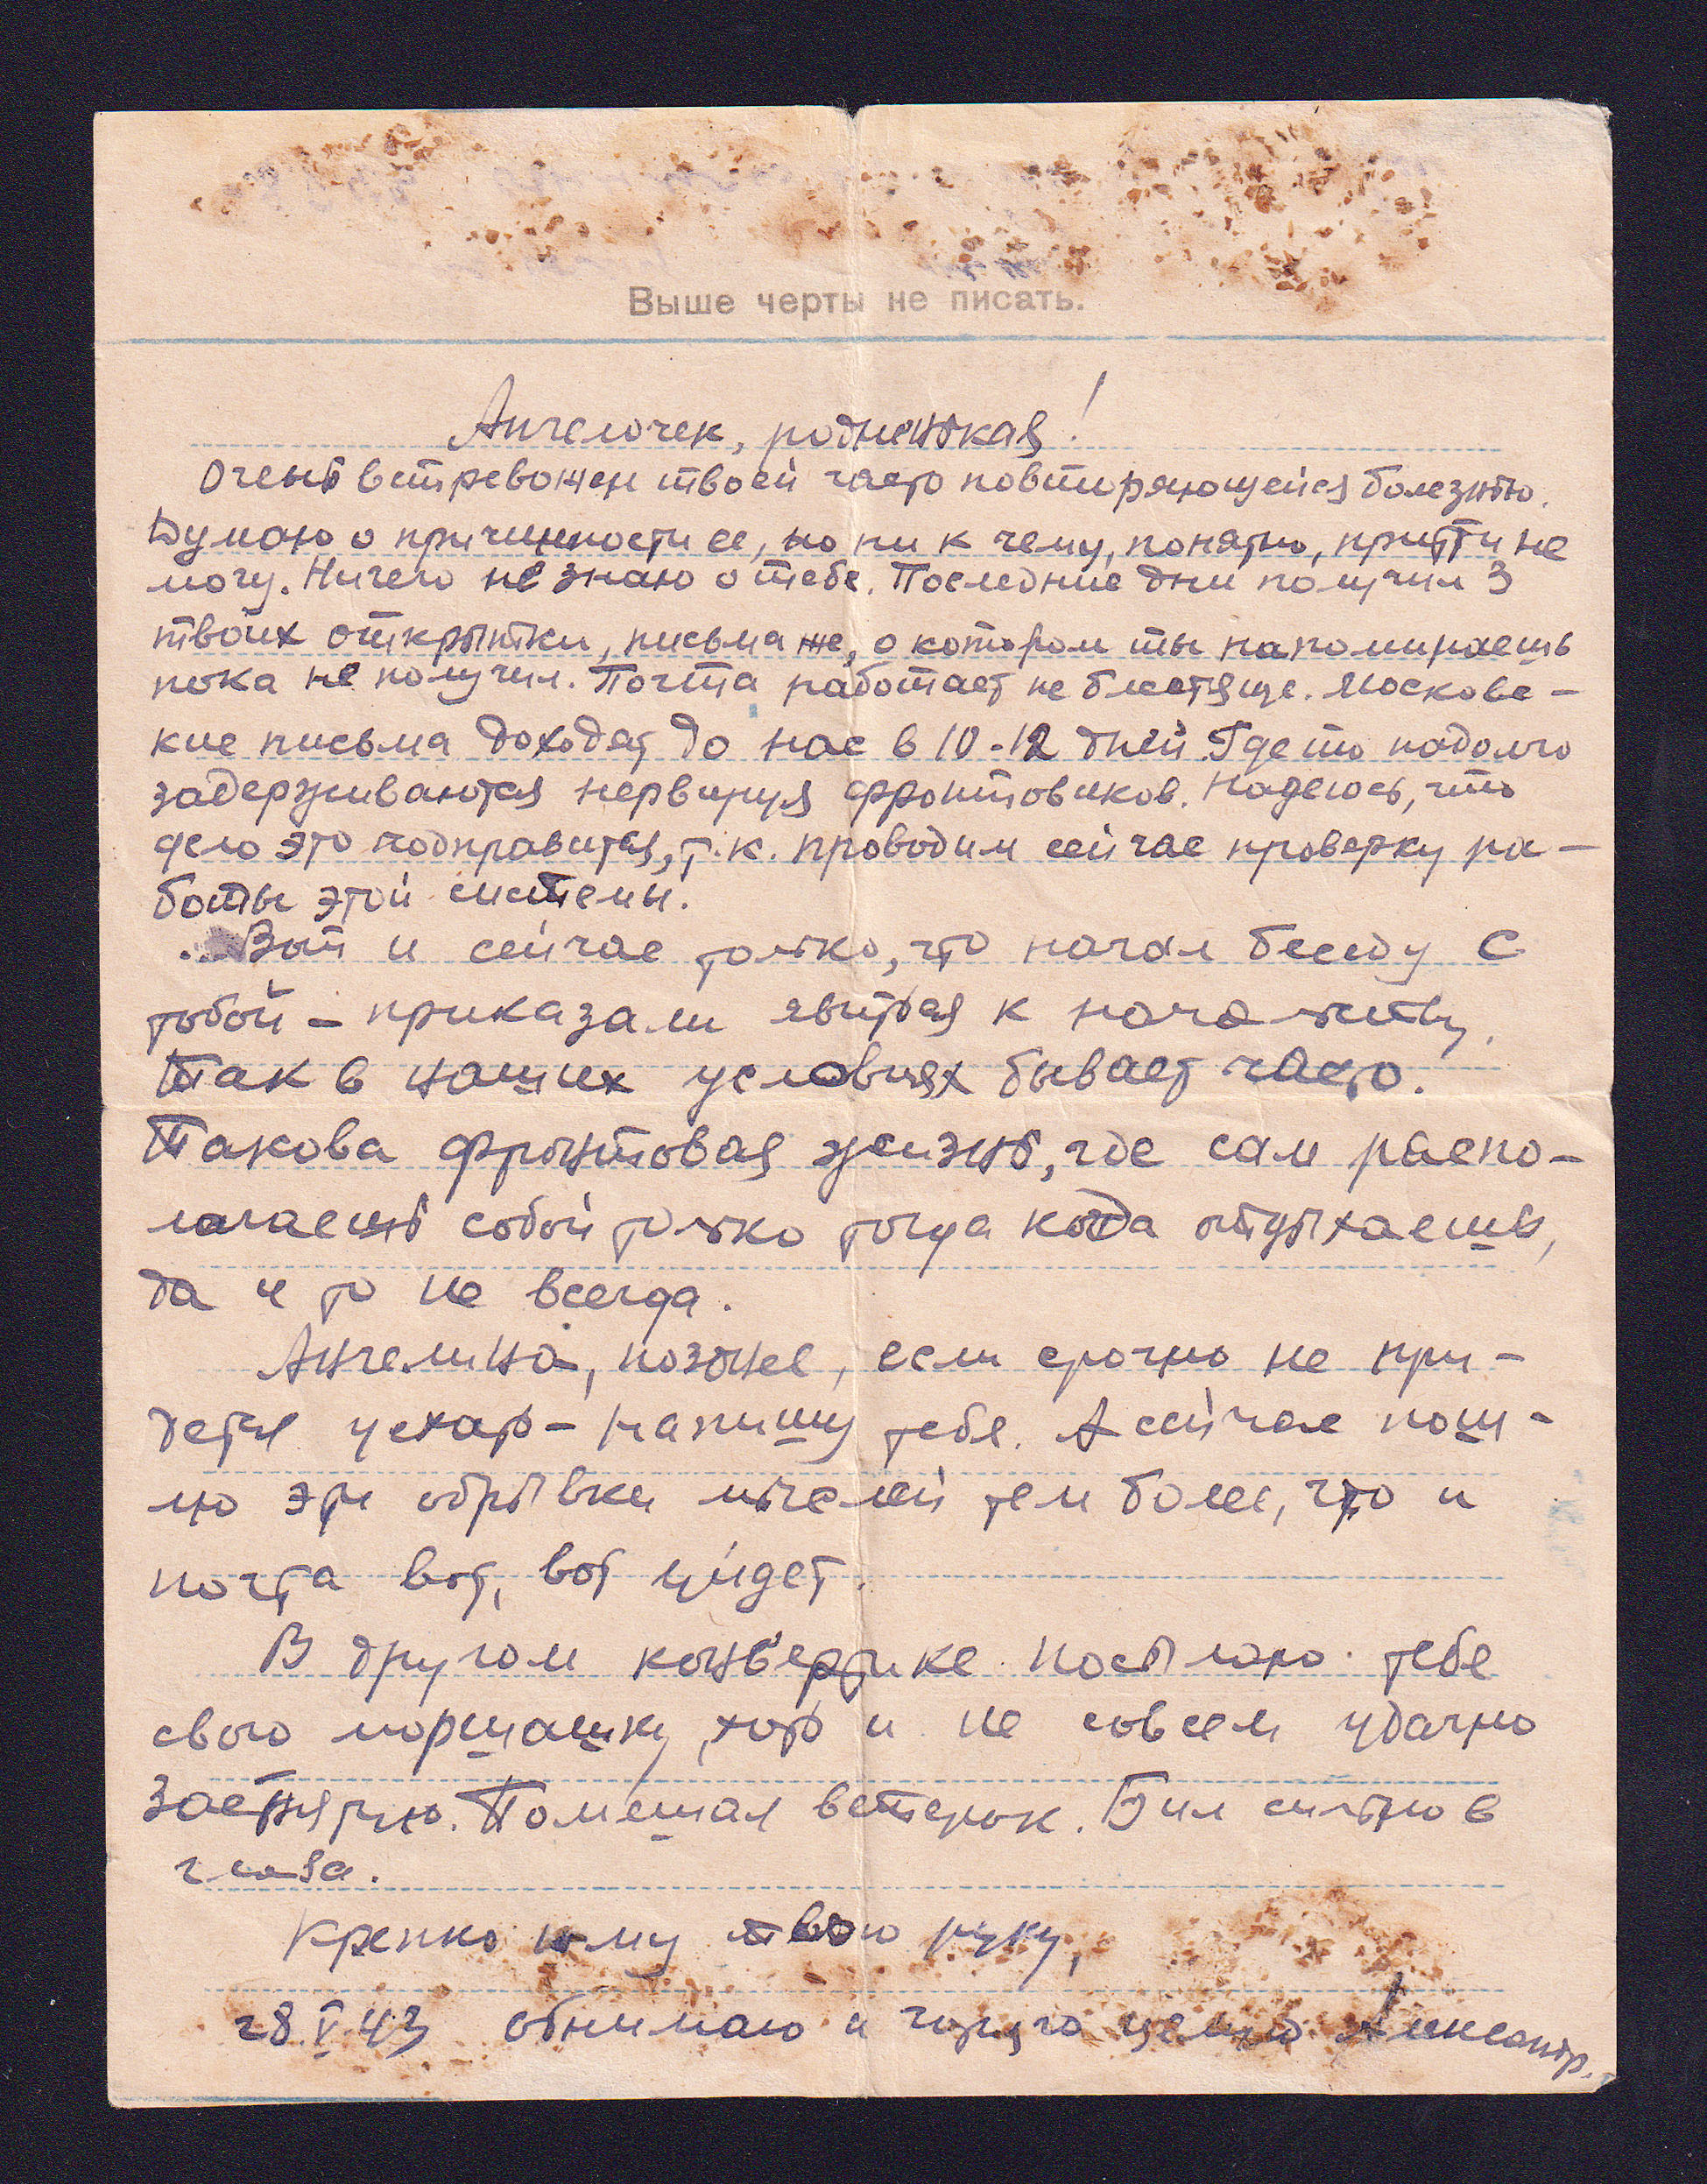 Выше черты не писать.
Ангелочек, родненькая!
Очень встревожен твоей часто повторяющейся болезнью.
Думаю о причинности ее, но ни к чему, понятно, притти не
могу. Ничего не знаю о тебе. Последние дни получил 3
твоих открытки, письма же, о котором ты напоминаешь
пока не получил. Почта работает не блестяще. Московс-
кие письма доходят до нас в 10-12 дней. Где то надолго
задерживаются нервируя фронтовиков. Надеюсь, что
дело это подправится, т.к. проводим сейчас проверку ра-
боты этой системы.
Вот и сейчас только, что начал беседу с
тобой - приказали явиться к начальству.
Так в наших условиях бывает часто.
Такова фронтовая жизнь, где сам распо-
лагаешь собой только тогда когда отдыхаешь,
да и то не всегда.
Ангелина, позднее, если срочно не при-
дется уехать - напишу тебе. А сейчас пош-
лю эти обрывки мыслей тем более, что и
почта вот, вот уйдет.
В другом конвертике посылаю тебе
свою мордашку, хоть и не совсем удачно
заснятую. Помешал ветерок. Бил сильно в
глаза.
Крепко жму твою руку,
28.V.43 обнимаю и горячо целую Александр.